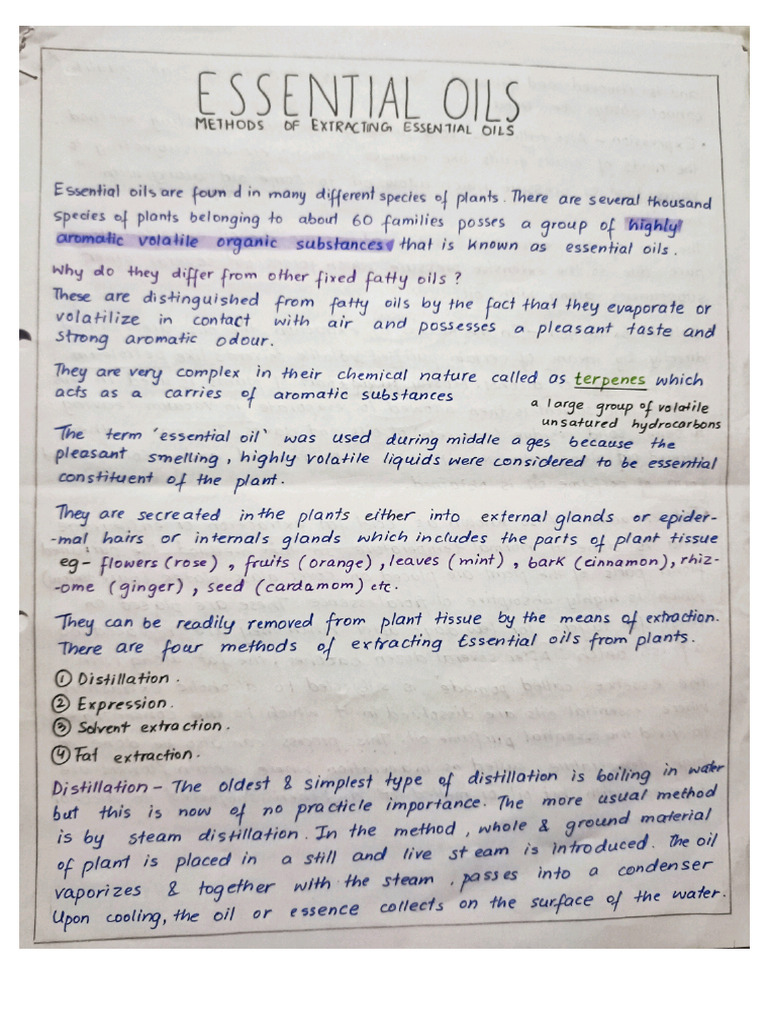 ESSENTIAL OILS
METHODS OF EXTRACTING ESSENTIAL OILS
Essential oils are foun d in many different species of plants. There are several thousand
species of plants belonging to about 60 families posses a group of highly
aromatic volatile organic substances that is known as essential oils.
Why do they differ from other fixed fatty oils ?
These are distinguished from fatty oils by the fact that they evaporate or
volatilize in contact with air and possesses a pleasant taste and
strong aromatic odour.
They are very complex in their chemical nature called as terpenes which
acts as a carries of aromatic substances
a large group of volatile
unsatured hydrocarbons
The term 'essential oil' was used during middle ages because the
pleasant smelling, highly volatile liquids were considered to be essential
constituent of the plant.
They are secreated in the plants either into external glands or epider-
-mal hairs or internals glands which includes the parts of plant tissue
eg- flowers (rose) , fruits (orange) , leaves (mint) , bark (cinnamon), rhiz-
-ome (ginger) , seed (cardamom) etc.
They can be readily removed from plant tissue by the means of extraction.
There are four methods of extracting Essential oils from plants.
① Distillation .
② Expression .
③ Solvent extraction .
④ Fat extraction .
Distillation - The oldest & simplest type of distillation is boiling in water
but this is now of no practicle importance. The more usual method
is by steam distillation. In the method , whole & ground material
of plant is placed in a still and live st eam is introduced. The oil
vaporizes & together with the steam , passes into a condenser
Upon cooling, the oil or essence collects on the surface of the water.